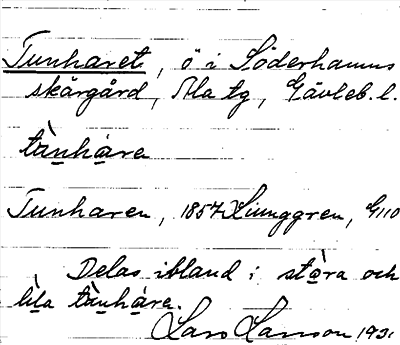 Tunharet, ö i Söderhamns
skärgård, Ala tg, Gävleb. l.
tùnhàre
Tunharen, 1857 Ljunggren, G110
Delas ibland i stòra och
lìla tùnhàre.
Lars Larsson 1931